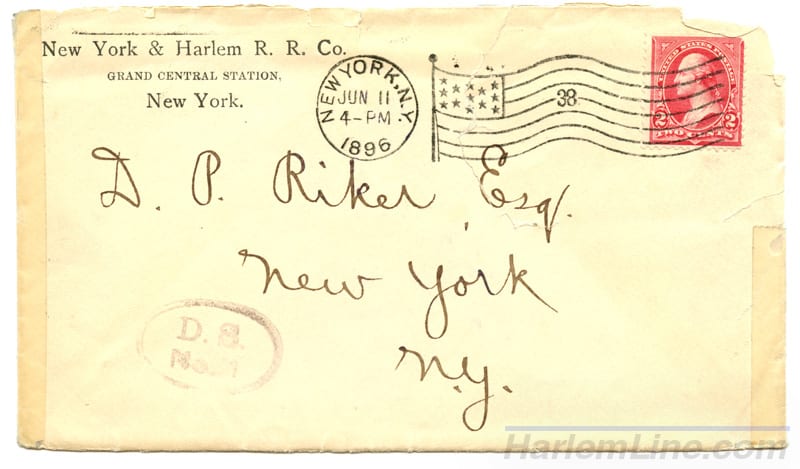 New York & Harlem R. R. Co.
GRAND CENTRAL STATION,
New York.
NEW YORK, N.Y.
JUN 11
4-PM
1896
38
UNITED STATES POSTAGE
2 2
TWO CENTS
D. P. Riker Esq.
New York
N.Y.
D. S.
No. 1
HarlemLine.com